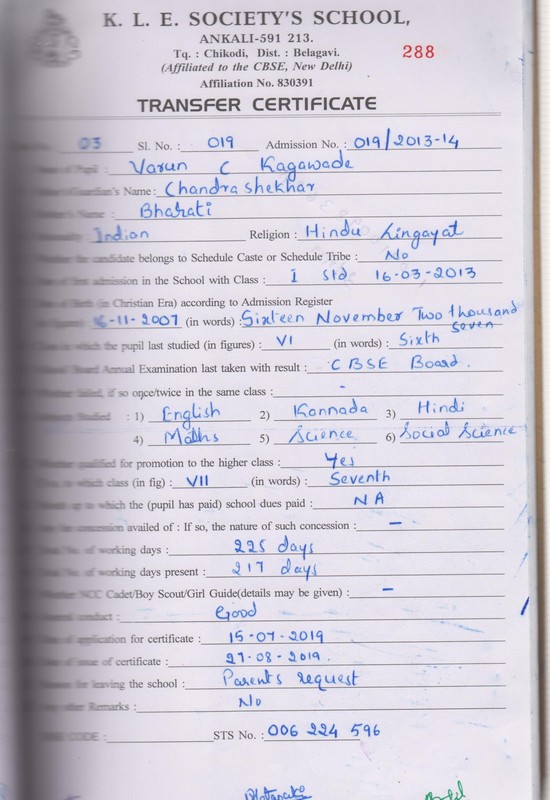 K. L. E. SOCIETY'S SCHOOL,
ANKALI-591 213.
Tq. : Chikodi, Dist. : Belagavi.
288
(Affiliated to the CBSE, New Delhi)
Affiliation No. 830391
TRANSFER CERTIFICATE
03 Sl. No. : 019 Admission No. : 019/2013-14
Varun C Kagawade
Name : Chandrashekhar
Name : Bharati
Indian Religion : Hindu Lingayat
candidate belongs to Schedule Caste or Schedule Tribe : No
admission in the School with Class : I std 16-03-2013
(in Christian Era) according to Admission Register
16-11-2007 (in words) : Sixteen November Two thousand seven
in which the pupil last studied (in figures) : VI (in words) : Sixth
Board Annual Examination last taken with result : CBSE Board.
failed, if so once/twice in the same class : -
Studied : 1) English 2) Kannada 3) Hindi
4) Maths 5) Science 6) Social Science
qualified for promotion to the higher class : Yes
which class (in fig) : VII (in words) : Seventh
which the (pupil has paid) school dues paid : NA
concession availed of : If so, the nature of such concession : -
of working days : 225 days
of working days present : 217 days
NCC Cadet/Boy Scout/Girl Guide(details may be given) : -
conduct : Good
of application for certificate : 15-07-2019
of issue of certificate : 27-08-2019.
for leaving the school : Parents request
Remarks : No
CODE : STS No. : 006 224 596